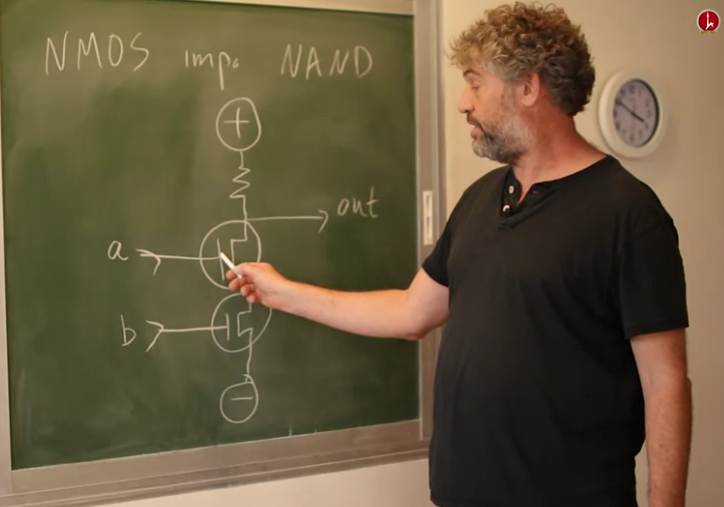 NMOS impo NAND
+
out
a
b
−